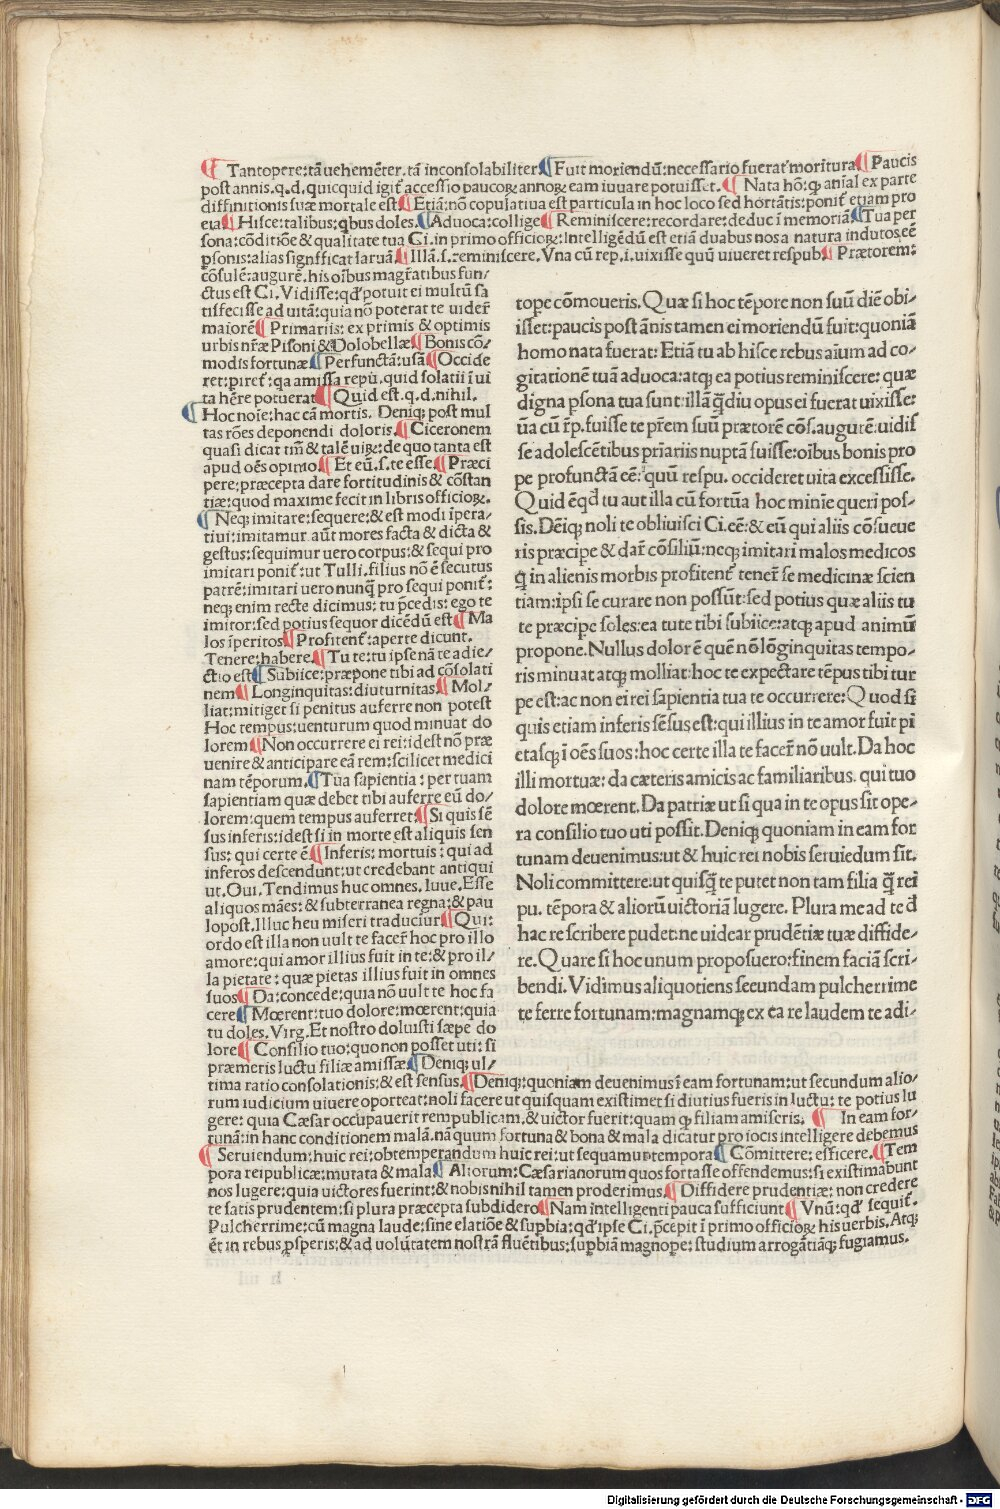 ¶ Tantopere:tā uehemēter.tā inconsolabiliter ¶ Fuit moriendū:necessario fuerat moritura ¶ Paucis
post annis.q.d.quicquid igit̄ accessio paucoꝝ annoꝝ eam iuuare potuisset. ¶ Nata hō:ꝙ aīal ex parte
diffinitionis suæ mortale est ¶ Etiā:nō copulatiua est particula in hoc loco sed hortātis:ponit̄ etiam pro
eia ¶ Hisce:talibus:qbus doles. ¶ Aduoca:collige ¶ Reminiscere:recordare:deduc ī memoriā. ¶ Tua per
sona:cōditiōe & qualitate tua Ci.in primo officioꝝ:Intelligēdū est etiā duabus nos a natura indutos eē
ꝑsonis:alias significat laruā ¶ Illā.s.reminiscere.Vna cū rep.i.uixisse quū uiueret respub ¶ Prætorem:
cōsulē:augurē.his oībus magr̄atibus fun/
ctus est Ci.Vidisse:qđ potuit ei multū sa
tisfecisse ad uitā:quia nō poterat te uider̄
maiorē ¶ Primariis:ex primis & optimis
urbis nr̄æ Pisoni & Dolobellæ ¶ Bonis cō/
modis fortunæ ¶ Perfunctā:usā ¶ Occide
ret:ꝑiret:qa amissa repū.quid solatii ī ui
ta hr̄e potuerat ¶ Quid est.q.d.nihil.
¶ Hoc noīe:hac cā mortis. Deniqꝫ post mul
tas rōes deponendi doloris. ¶ Ciceronem
quasi dicat tm̄ & talē uiꝝ:de quo tanta est
apud oēs opīno ¶ Et eū.s.te esse ¶ Præci
pere:præcepta dare fortitudinis & cōstan
tiæ:quod maxime fecit in libris officioꝝ.
¶ Neqꝫ imitare:sequere:& est modi īpera/
tiui:imitamur aūt mores facta & dicta &
gestus:sequimur uero corpus:& sequi pro
imitari ponit̄:ut Tulli.filius nō ē secutus
patrē:imitari uero nunꝗ pro sequi ponit̄:
neqꝫ enim recte dicimus:tu p̄cedis:ego te
imitor:sed potius sequor dicēdū est ¶ Ma
los īperitos ¶ Profitent̄:aperte dicunt.
Tenere:habere ¶ Tu te:tu ipse nā te adie/
ctio est ¶ Subiice:præpone tibi ad cōsolati
nem ¶ Longinquitas:diuturnitas ¶ Mol/
liat:mitiget si penitus auferre non potest
Hoc tempus:uenturum quod minuat do
lorem ¶ Non occurrere ei rei:idest nō præ
uenire & anticipare eā rem:scilicet medici
nam tēporum. ¶ Tua sapientia:per tuam
sapientiam quæ debet tibi auferre eū do/
lorem:quem tempus auferret ¶ Si quis sē
sus inferis:idest si in morte est aliquis sen
sus:qui certe ē ¶ Inferis:mortuis:qui ad
inferos descendunt:ut credebant antiqui
ut.Oui.Tendimus huc omnes.Iuue.Esse
aliquos māes:& subterranea regna:& pau
lopost.Illuc heu miseri traducīur ¶ Qui:
ordo est illa non uult te facer̄ hoc pro illo
amore:qui amor illius fuit in te:& pro il/
la pietate:quæ pietas illius fuit in omnes
suos ¶ Da:concede:quia nō uult te hoc fa
cere ¶ Mœrent:tuo dolore:mœrent:quia
tu doles.Virg.Et nostro doluisti sæpe do
lore ¶ Consilio tuo:quo non posset uti:si
præmeris luctu filiæ amissæ ¶ Deniqꝫ ul/
tima ratio consolationis:& est sensus.
tope cōmoueris.Quæ si hoc tēpore non suū diē obi/
isset:paucis post ānis tamen ei moriendū fuit:quoniā
homo nata fuerat:Etiā tu ab hisce rebus aīum ad co/
gitationē tuā aduoca:atqꝫ ea potius reminiscere:quæ
digna ꝑsona tua sunt:illā ꝗdiu opus ei fuerat uixisse:
ūa cū r̄p.fuisse te pr̄em suū prætorē cōs.augurē:uidis
se adolescētibus pr̄iariis nuptā fuisse:oībus bonis pro
pe profunctā eē:quū respu.occideret uita excessisse.
Quid ē qđ tu aut illa cū fortūa hoc minīe queri pos/
sis.Dēiqꝫ noli te obliuisci Ci.eē:& eū qui aliis cōsueue
ris præcipe & dar̄ cōsiliū:neqꝫ imitari malos medicos
ꝗ in alienis morbis profitent̄ tener̄ se medicinæ scien
tiam:ipsi se curare non possūt:sed potius quæ aliis tu
te præcipe soles:ea tute tibi subiice:atqꝫ apud animū
propone.Nullus dolor ē quē nō lōginquitas tempo/
ris minuat atqꝫ molliat:hoc te expectare tēpus tibi tur
pe est:ac non ei rei sapientia tua te occurrere:Quod si
quis etiam inferis sēsus est:qui illius in te amor fuit pi
etasqꝫ ī oēs suos:hoc certe illa te facer̄ nō uult.Da hoc
illi mortuæ:da cæteris amicis ac familiaribus.qui tuo
dolore mœrent.Da patriæ ut si qua in te opus sit ope/
ra consilio tuo uti possit.Deniqꝫ quoniam in eam for
tunam deuenimus:ut & huic rei nobis seruiedum sit.
Noli committere:ut quisꝗ te putet non tam filia ꝗ rei
pu.tēpora & aliorū uictoriā lugere. Plura me ad te đ
hac re scribere pudet:ne uidear prudētiæ tuæ diffide/
re.Quare si hoc unum proposuero:finem faciā scri/
bendi.Vidimus aliquotiens secundam pulcherrime
te ferre fortunam:magnamqꝫ ex ea re laudem te adi/
¶ Deniqꝫ:quoniam deuenimus ī eam fortunam:ut secundum alio/
rum iudicium uiuere oporteat:noli facere ut quisquam existimet si diutius fueris in luctu:te potius lu
gere:quia Cæsar occupauerit rempublicam.& uictor fuerit:quam ꝙ filiam amiseris. ¶ In eam for/
tunā:in hanc conditionem malā.nā quum fortuna & bona & mala dicatur pro iocis intelligere debemus
¶ Seruiendum:huic rei:obtemperandum huic rei:ut sequamur tempora ¶ Cōmittere:efficere. ¶ Tem
pora reipublicæ:mutata & mala ¶ Aliorum:Cæsarianorum quos fortasse offendemus:si existimabunt
nos lugere:quia uictores fuerint:& nobis nihil tamen proderimus. ¶ Diffidere prudentiæ:non credere
te satis prudentem:si plura præcepta subdidero ¶ Nam īntelligenti pauca sufficiunt ¶ Vnū:qđ sequit̄.
Pulcherrime:cū magna laude:sine elatiōe & suꝑbia:qđ ipse Ci.p̄cepit ī primo officioꝝ his uerbis.Atqꝫ
ēt in rebus ꝓsperis:& ad uolūtatem nostrā fluētibus:suꝑbiā magnope:studium arrogātiāqꝫ fugiamus.
Digitalisierung gefördert durch die Deutsche Forschungsgemeinschaft - DFG